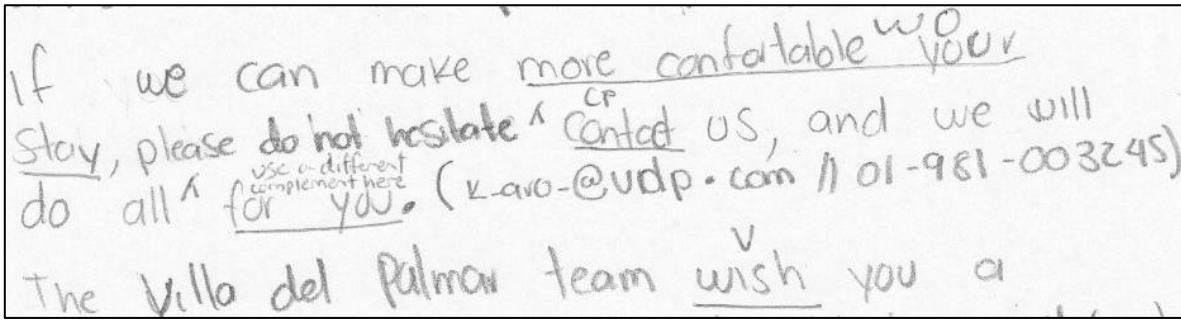 WO
If we can make more confortable your
CP
stay, please do not hesitate ^ contact us, and we will
use a different
complement here
do all ^ for you. (k-aro-@vdp.com // 01-981-003245)
V
The Villa del Palmar team wish you a